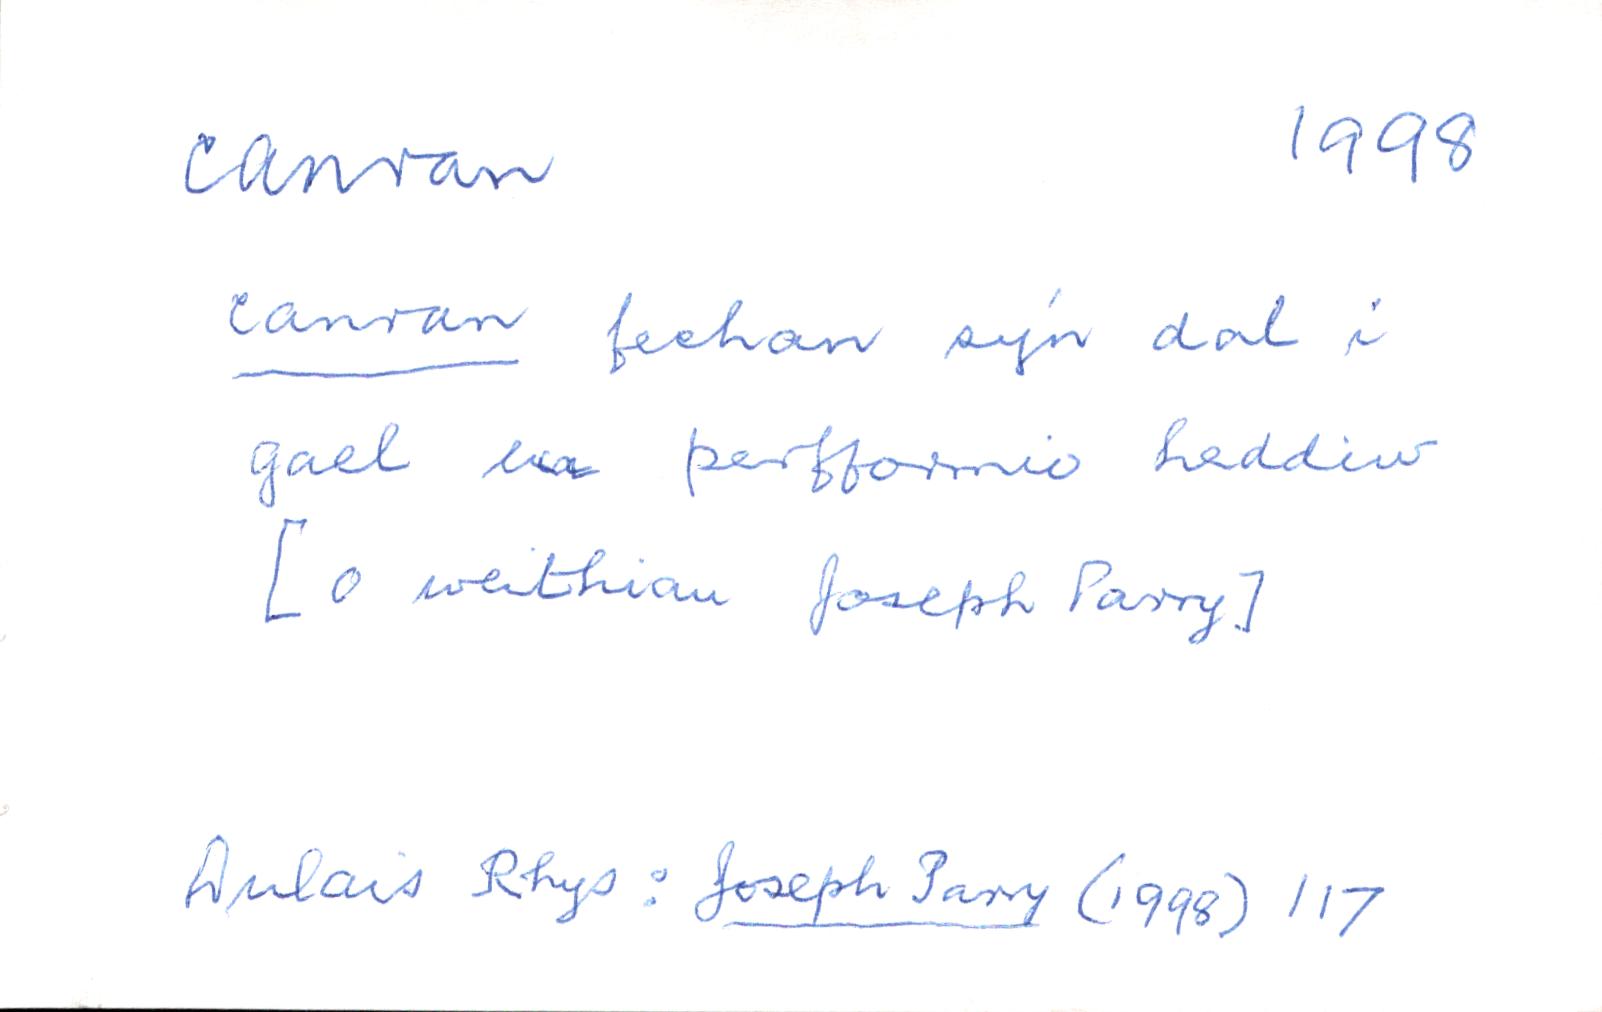 canran 1998
canran fechan sy'n dal i
gael eu perfformio heddiw
[o weithiau Joseph Parry]
Dulais Rhys: Joseph Parry (1998) 117